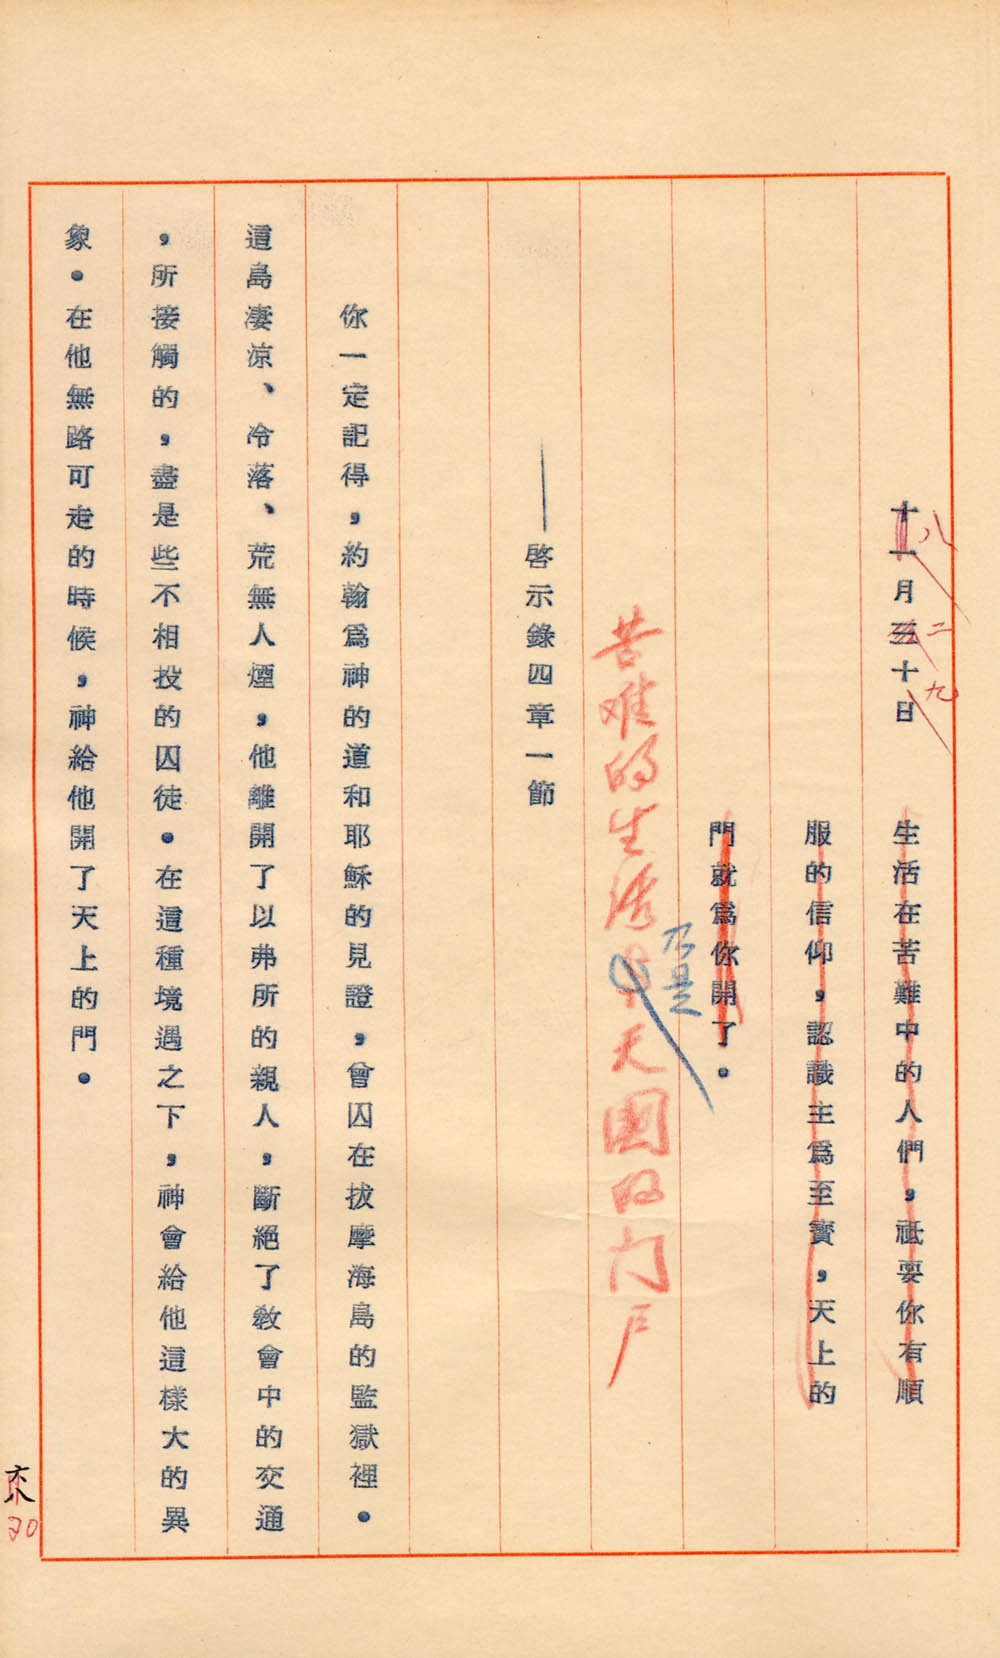 十一月三十日
八
二
九
生活在苦難中的人們，祗要你有順
服的信仰，認識主爲至寶，天上的
門就爲你開了。
乃是
苦难的生活是天國的门戶
——啓示錄四章一節
你一定記得，約翰爲神的道和耶穌的見證，曾囚在拔摩海島的監獄裡。
這島淒涼、冷落、荒無人煙，他離開了以弗所的親人，斷絕了敎會中的交通
，所接觸的，盡是些不相投的囚徒。在這種境遇之下，神會給他這樣大的異
象。在他無路可走的時候，神給他開了天上的門。
20